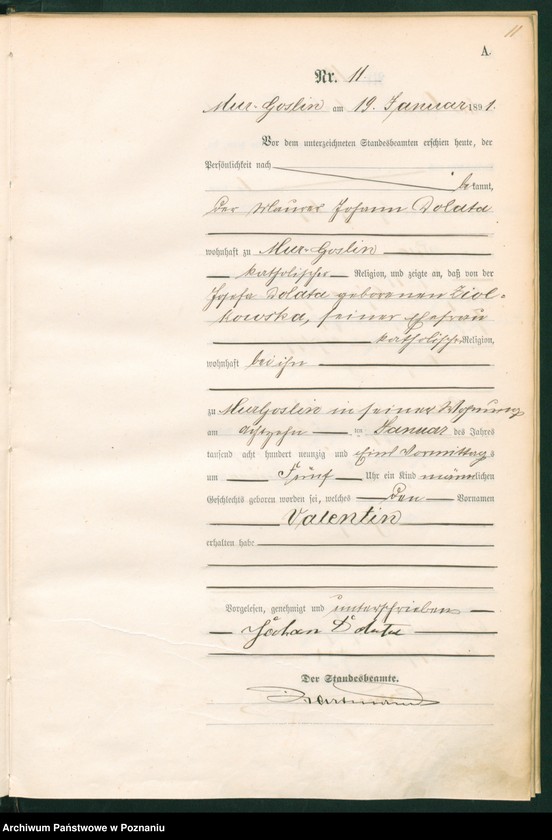 11
A.
Nr. 11.
Mur-Goslin am 19. Januar 1891.
Vor dem unterzeichneten Standesbeamten erschien heute, der
Persönlichkeit nach
bekannt,
der Maurer Johann Dolata
wohnhaft zu Mur-Goslin
katholischer Religion, und zeigte an, daß von der
Josefa Dolata geborenen Ziol-
kowska, seiner Ehefrau
katholischer Religion,
wohnhaft bei ihm
zu Mur Goslin in seiner Wohnung
am achtzehn ten Januar des Jahres
tausend acht hundert neunzig und Eins Vormittags
um Fünf Uhr ein Kind männlichen
Geschlechts geboren worden sei, welches den Vornamen
Valentin
erhalten habe
Vorgelesen, genehmigt und unterschrieben
Johan Dolata
Der Standesbeamte.
Hartmann
Archiwum Państwowe w Poznaniu